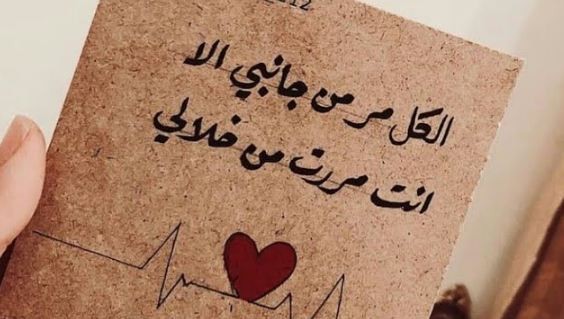 الكل مر من جانبي الا
انت مررت من خلالي